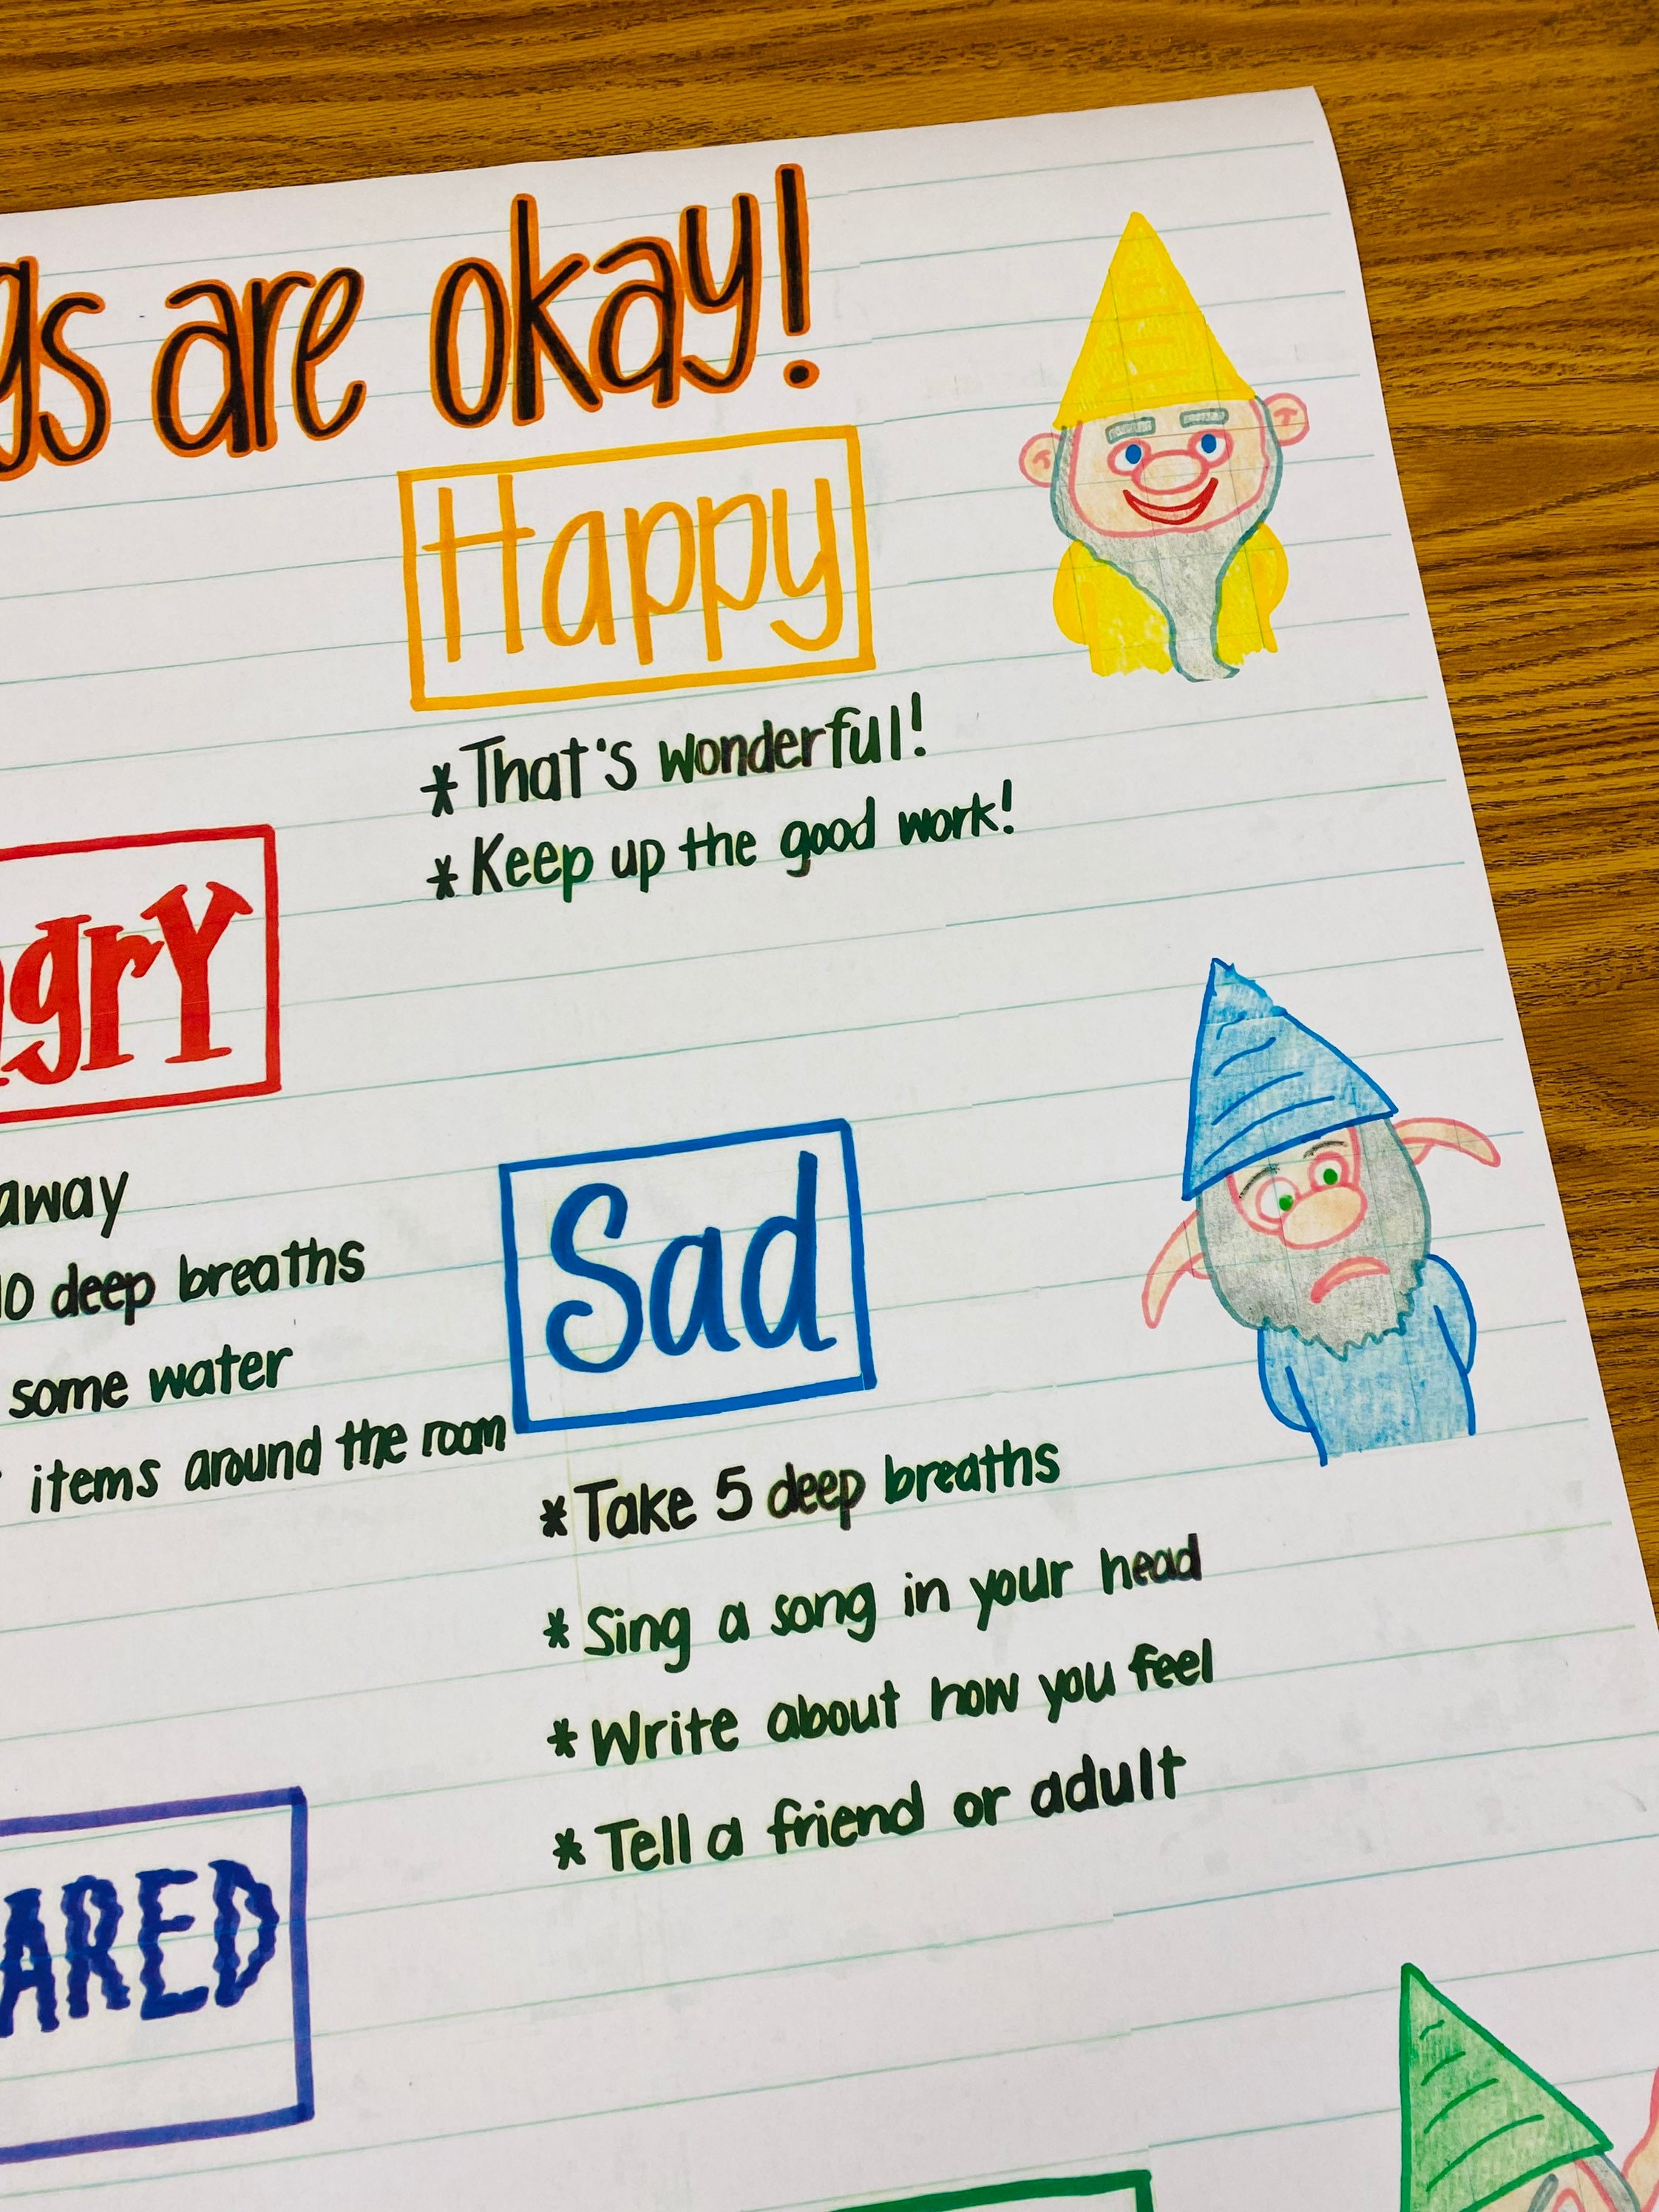 gs are okay!
Happy
*That's wonderful!
*Keep up the good work!
ngry
away
10 deep breaths
some water
items around the room
Sad
*Take 5 deep breaths
*Sing a song in your head
*Write about how you feel
*Tell a friend or adult
ARED